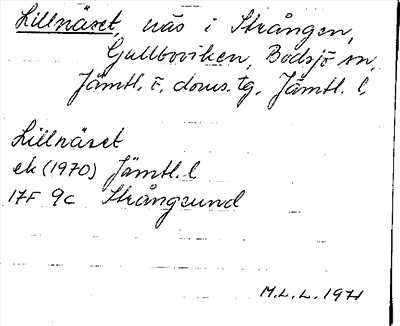 Lillnäset, näs i Strången,
Gullboviken, Bodsjö sn,
Jämtl. ö. doms. tg, Jämtl. l,
Lillnäset
ek (1970) Jämtl. l
17F 9c Strångsund
M.L.L. 1971